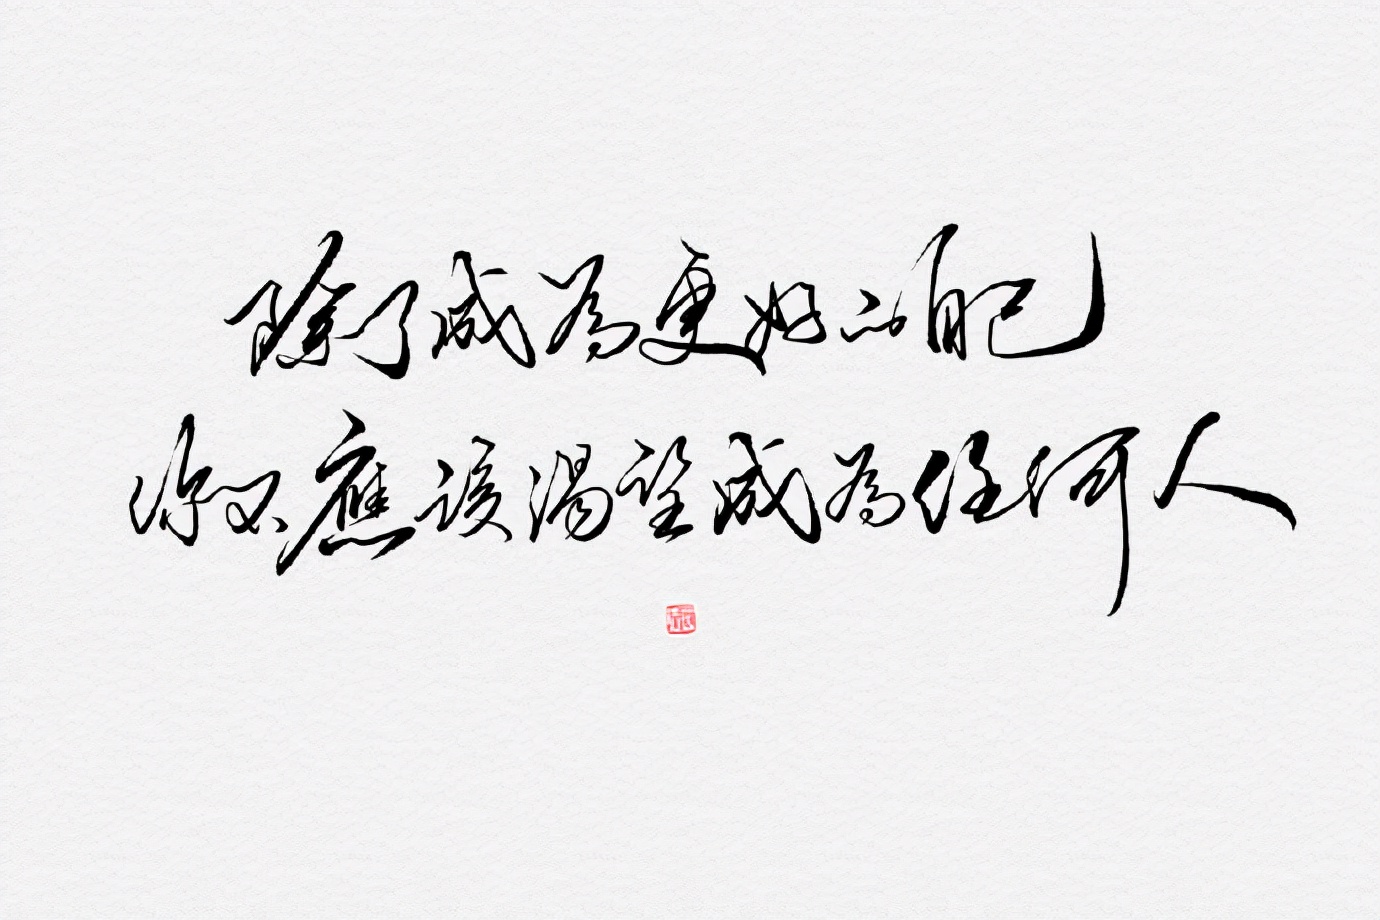 除了成為更好的自己
你不應該渴望成為任何人